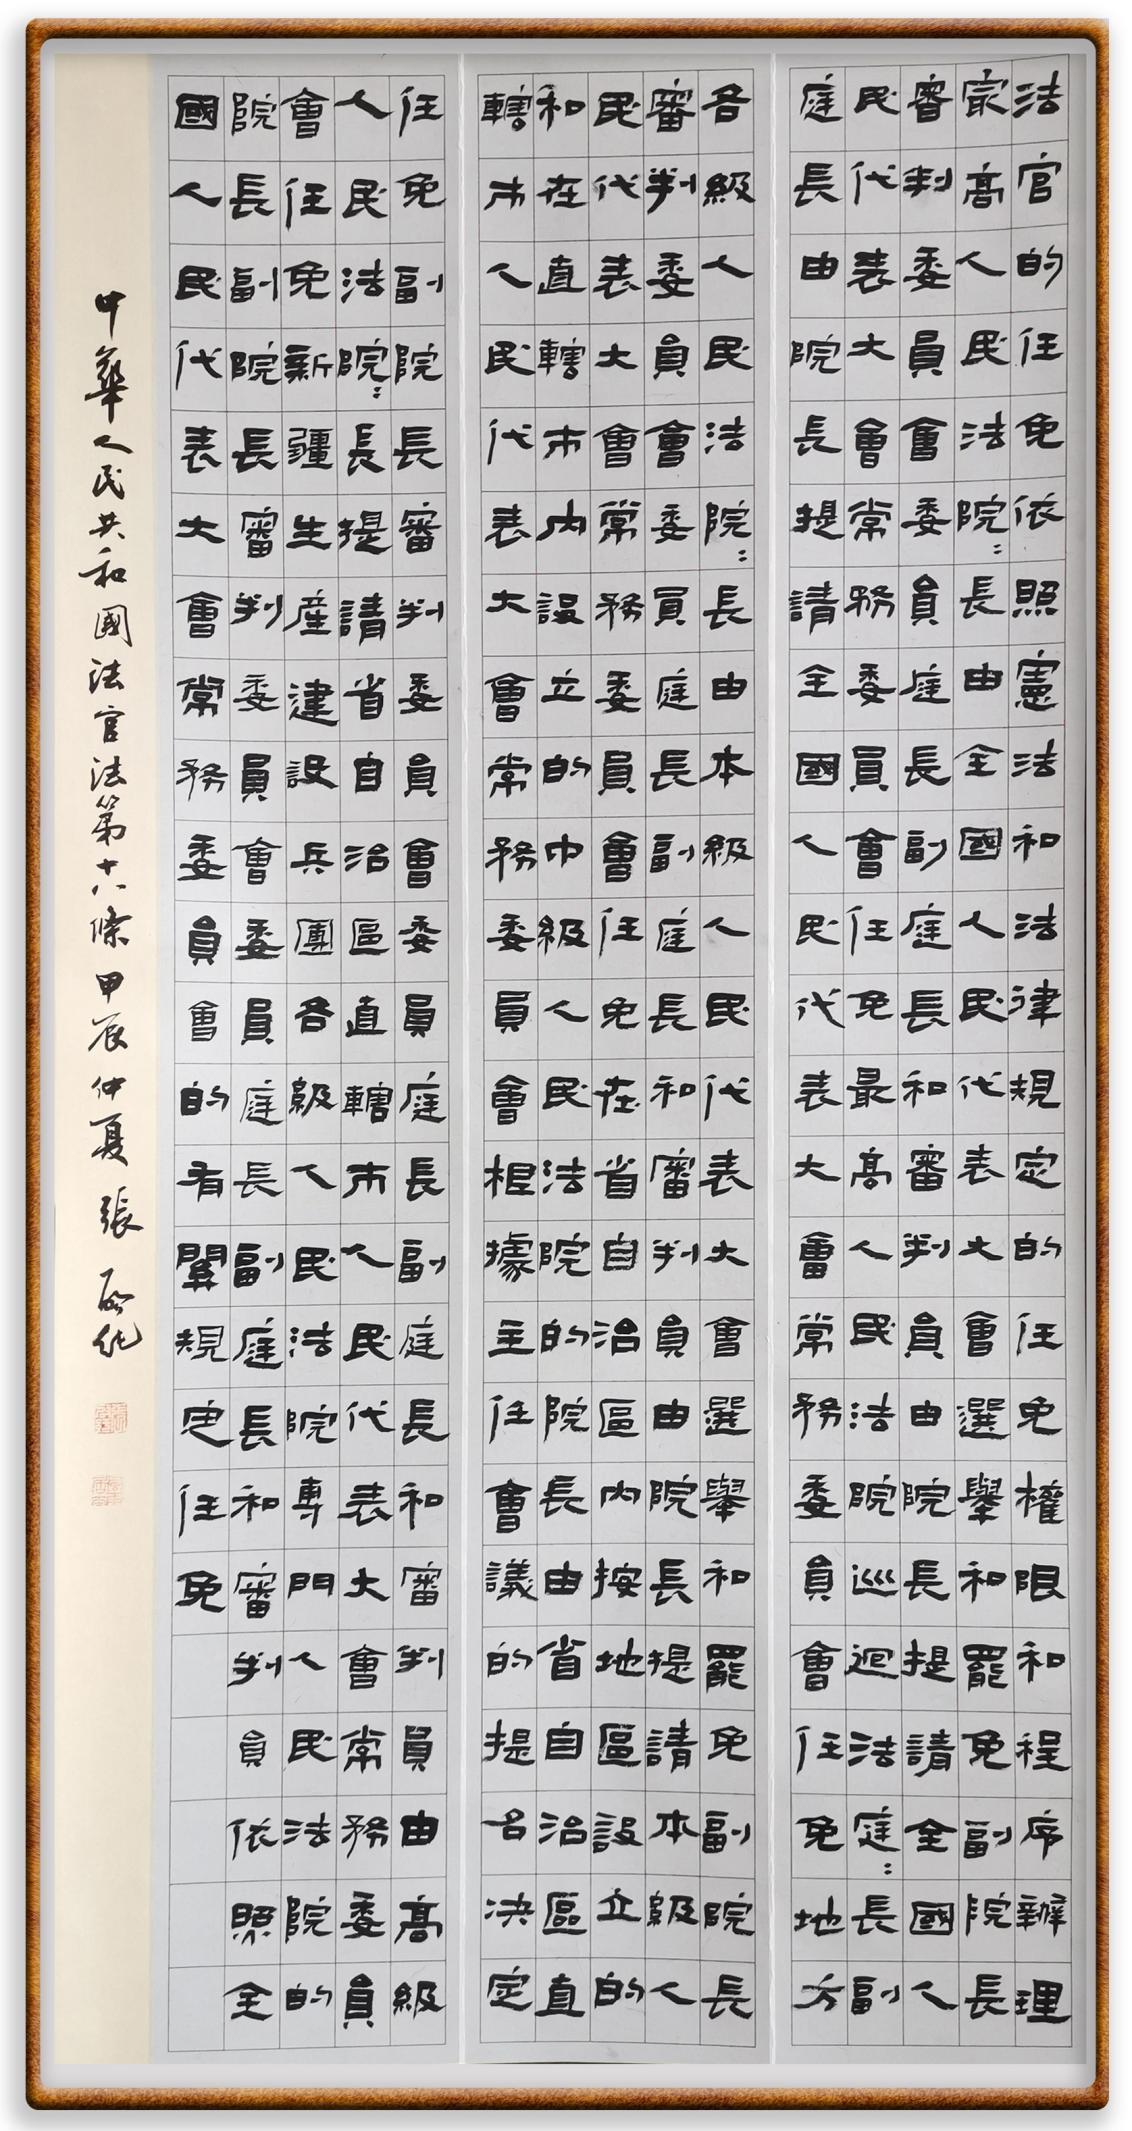 法官的任免依照憲法和法律規定的任免權限和程序辦理
最高人民法院：長由全國人民代表大會選舉和罷免副院長
審判委員會委員庭長副庭長和審判員由院長提請全國人
民代表大會常務委員會任免最高人民法院巡迴法庭：長副
庭長由院長提請全國人民代表大會常務委員會任免地方
各級人民法院：長由本級人民代表大會選舉和罷免副院長
審判委員會委員庭長副庭長和審判員由院長提請本級人
民代表大會常務委員會任免在省自治區內按地區設立的
和在直轄市內設立的中級人民法院的院長由省自治區直
轄市人民代表大會常務委員會根據主任會議的提名決定
任免副院長審判委員會委員庭長副庭長和審判員由高級
人民法院：長提請省自治區直轄市人民代表大會常務委員
會任免新疆生產建設兵團各級人民法院專門人民法院的
院長副院長審判委員會委員庭長副庭長和審判員依照全
國人民代表大會常務委員會的有關規定任免
中華人民共和國法官法第十八條甲辰仲夏張